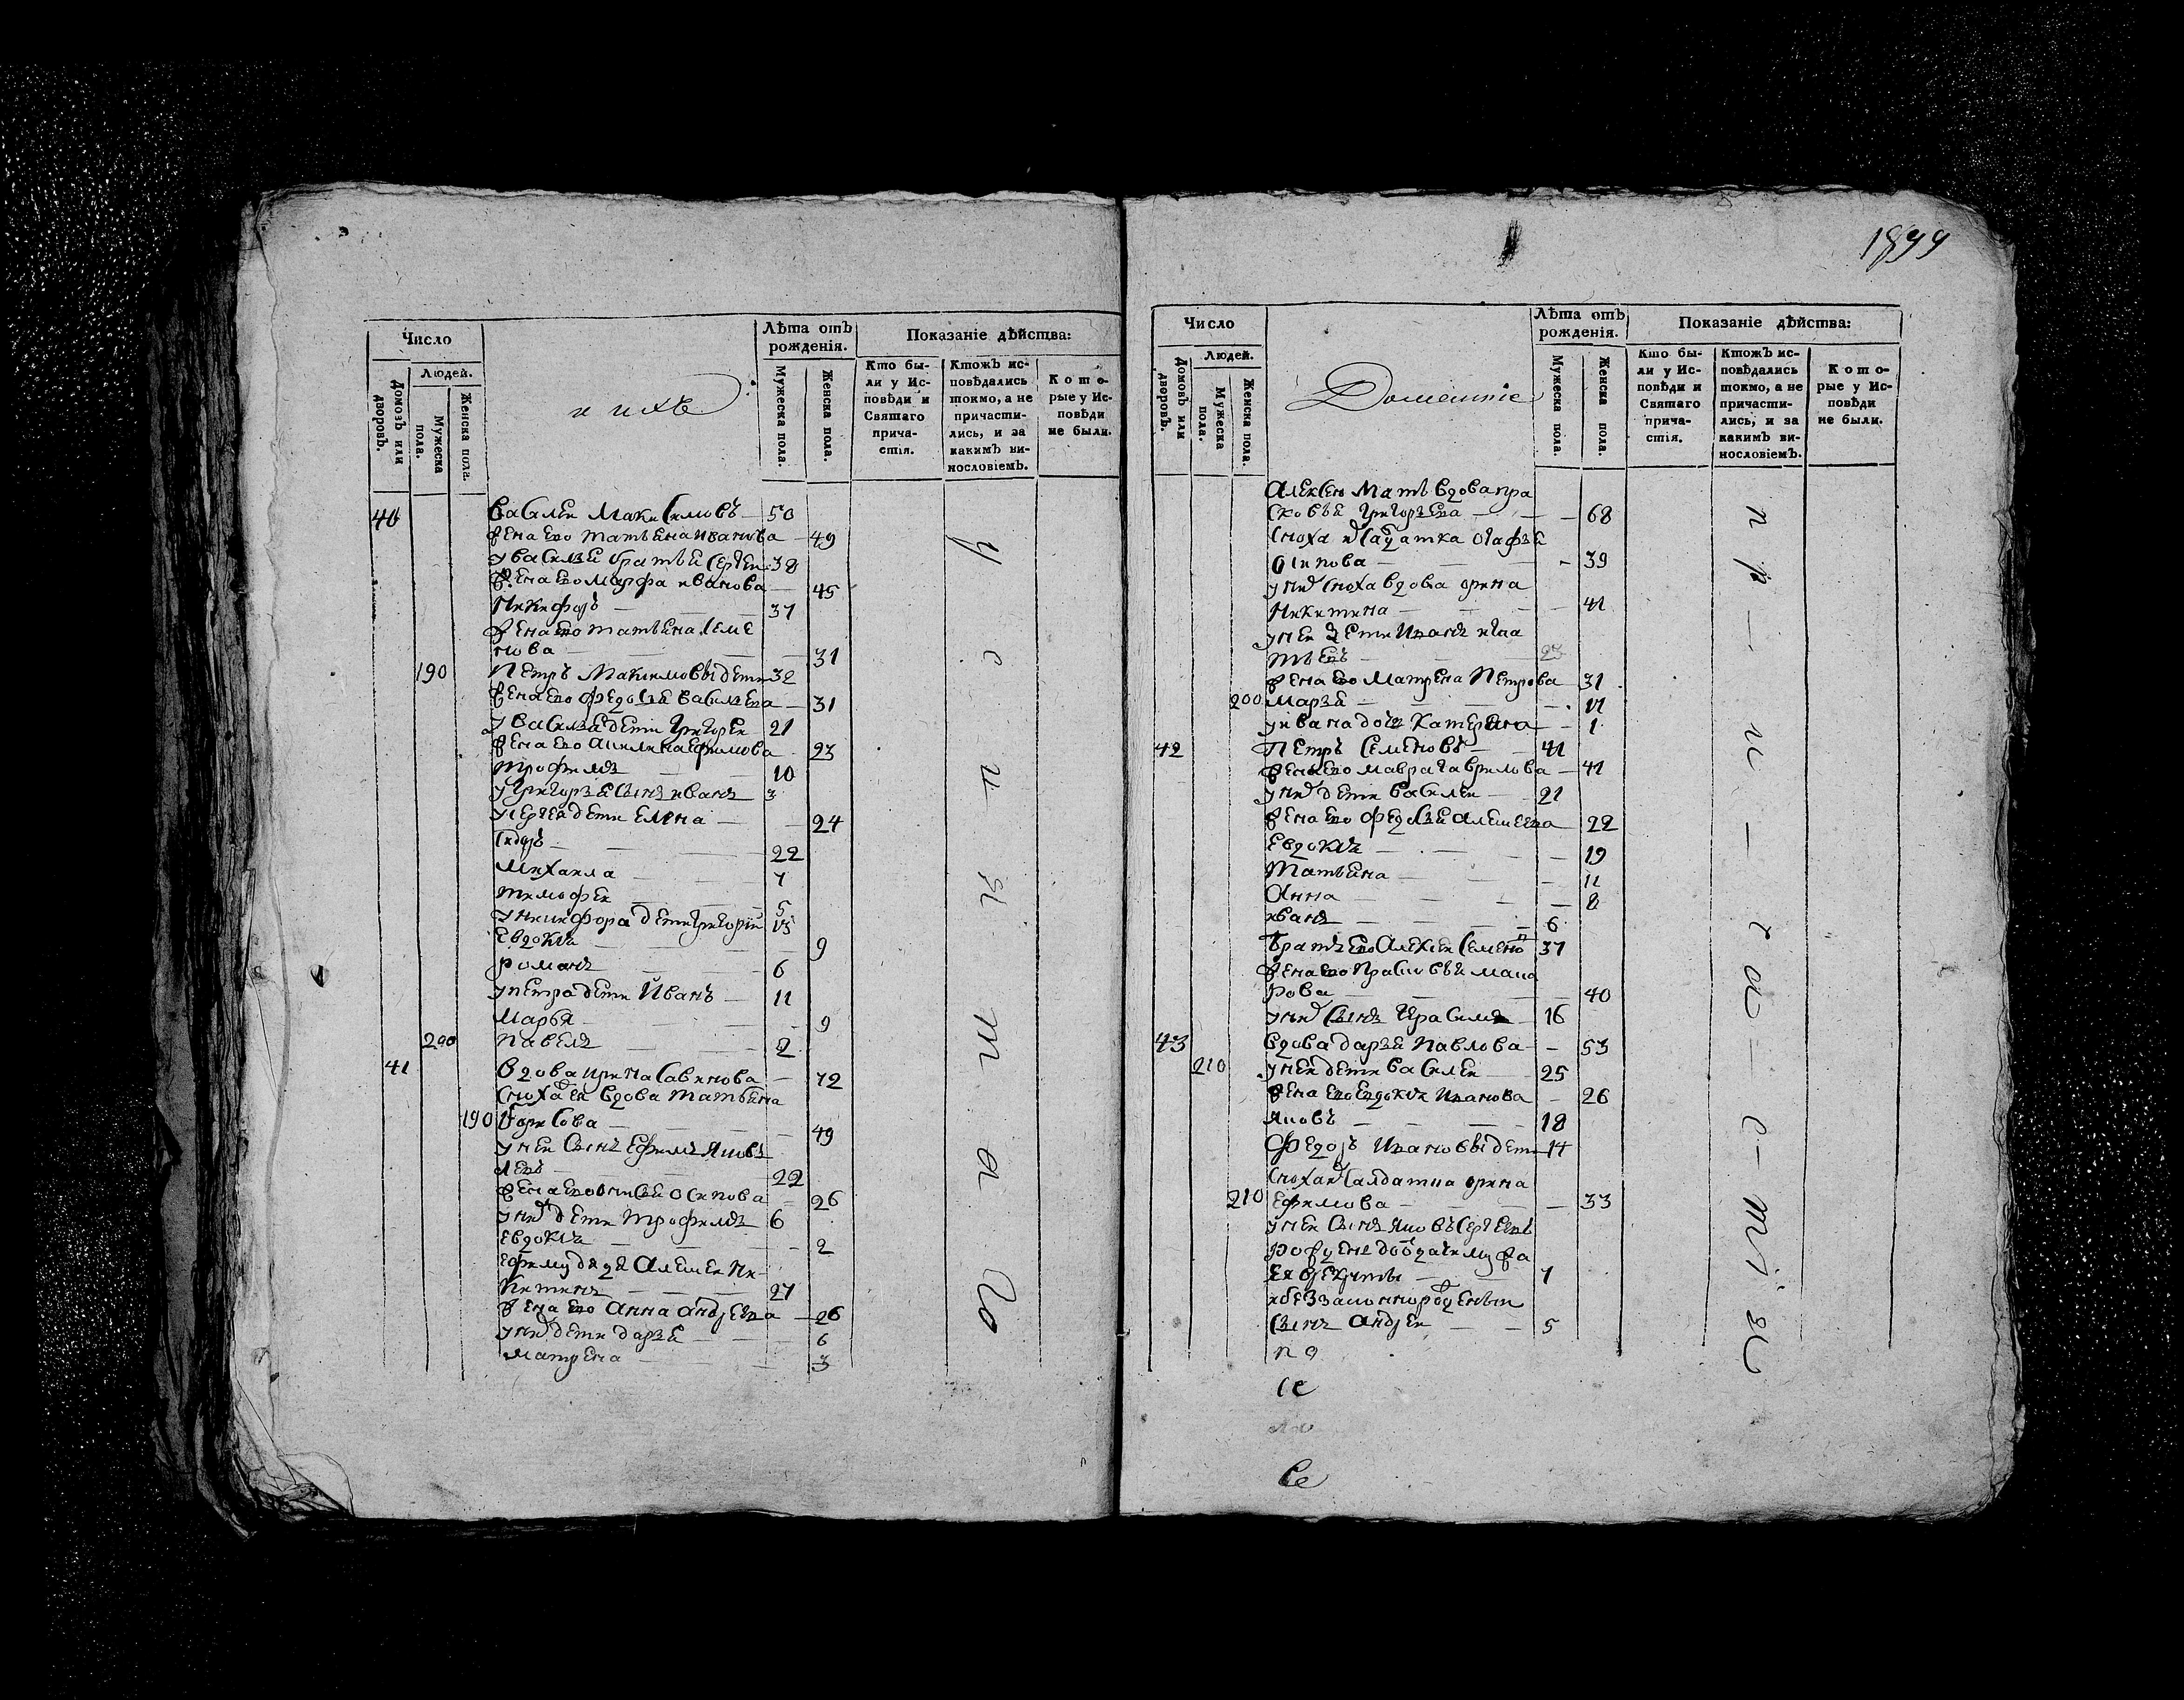 Число
Людей.
Домовъ или дворовъ.
Мужеска пола.
Женска пола.
и ихъ
Лѣта отъ рожденія.
Мужеска пола.
Женска пола.
Показаніе дѣйства:
Кто были у Исповѣди и Святаго причастія.
Ктожъ исповѣдались токмо, а не причастились, и за какимъ винословіемъ.
Которые у Исповѣди не были.
40 Василеи Максимовъ — 50
жена ево татьяна иванова — 49
у василья братья Сергеи 38
жена ево марфа иванова — 45
Никифоръ — 37
жена ево татьяна семе
нова — 31
190 Петръ Максимовы дети 32
жена ево федосья васильева — 31
у василья дети григореи 21
жена ево акилина ефимова 23
трофимъ — 10
у григорья сынъ иванъ 3
у сергея дети елена — 24
сидоръ — 22
михаила — 7
тимофеи — 5
у никифора дети григории 15
евдокия — 9
романъ — 6
у петра дети Иванъ — 11
марья — 9
200 павелъ — 2
41 вдова ирина савинова — 72
сноха ея вдова татьяна
190 борисова — 49
у неи сынъ ефимъ яковъ
левъ — 22
жена ево анисья осипова — 26
у них дети трофимъ 6
евдокия — 2
ефиму дядя алексеи ни
китинъ — 27
жена ево анна андреева — 26
у них дети дарья — 6
матрена — 3
у
с
и
н
т
а
го
1899
Число
Людей.
Домовъ или дворовъ.
Мужеска пола.
Женска пола.
Домашніе
Лѣта отъ рожденія.
Мужеска пола.
Женска пола.
Показаніе дѣйства:
Кто были у Исповѣди и Святаго причастія.
Ктожъ исповѣдались токмо, а не причастились, и за какимъ винословіемъ.
Которые у Исповѣди не были.
алексею мать вдова пра
сковья григорьева — 68
сноха их салдатка агафья
осипова — 39
у них сноха вдова орина
никитина — 41
у неи дети иванъ игна
тьевъ — 23
жена ево матрена петрова 31
200 марья — 17
у ивана дочь катерина — 1
42 петръ семеновъ — 41
жена ево мавра гаврилова — 41
у них дети василеи — 21
жена ево федосья алексеева 22
евдокия — 19
татьяна — 11
анна — 8
иванъ — 6
братъ ево алексеи семено 37
жена ево прасковья мака
рова — 40
у них сынъ герасимъ — 16
43 вдова дарья павлова — 53
210 у неи дети василеи — 25
жена ево евдокия иванова — 26
яковъ — 18
федоръ ивановы дети 14
сноха их салдатка орина
210 ефимова — 33
у неи сынъ яковъ сергеевъ
7
сынъ андреи — 5
по
се
ле
се
п
р
и
ч
а
с
т
і
я